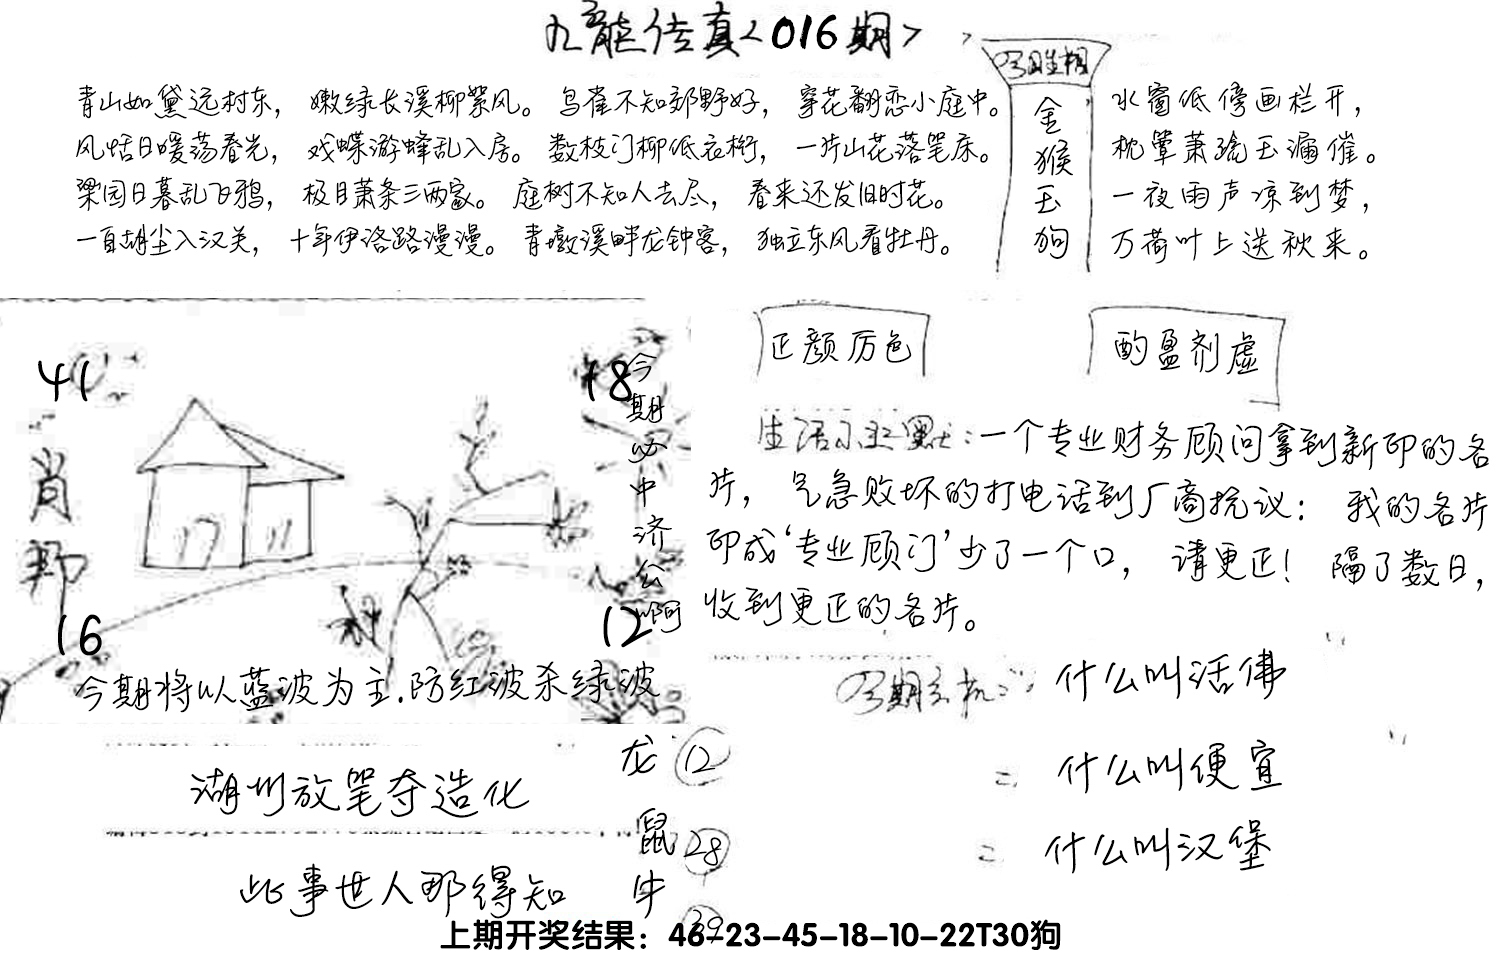 九龙传真<016期>
青山如黛远村东，嫩绿长溪柳絮风。鸟雀不知郊野好，穿花翻恋小庭中。
风恬日暖荡春光，戏蝶游蜂乱入房。数枝门柳低衣桁，一片山花落笔床。
梁园日暮乱飞鸦，极目萧条三两家。庭树不知人去尽，春来还发旧时花。
一自胡尘入汉关，十年伊洛路漫漫。青墩溪畔龙钟客，独立东风看牡丹。
金猴玉狗
水窗低傍画栏开，
枕簟萧疏玉漏催。
一夜雨声凉到梦，
万荷叶上送秋来。
41
18
肖
16
12
今期必中济公啊
今期将以蓝波为主.防红波杀绿波
正颜厉色
酌盈剂虚
生活小幽默:一个专业财务顾问拿到新印的名
片，气急败坏的打电话到厂商抗议：我的名片
印成‘专业顾门’少了一个口，请更正！隔了数日，
收到更正的名片。
什么叫活佛
= 什么叫便宜
= 什么叫汉堡
湖州放笔夺造化
此事世人那得知
龙 12
鼠 28
牛 39
上期开奖结果：46-23-45-18-10-22T30狗